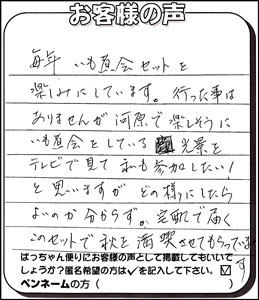 お客様の声
毎年 いも煮会セットを
楽しみにしています。行った事は
ありませんが河原で楽しそうに
いも煮会をしている 光景を
テレビで見て 私も参加したい!
と思いますが どの様にしたら
よいのか分からず。宅配で届く
このセットで秋を満喫させてもらっています
ばっちゃん便りにお客様の声として掲載してもいいで
しょうか?匿名希望の方は✓を記入して下さい。☑
ペンネームの方( )